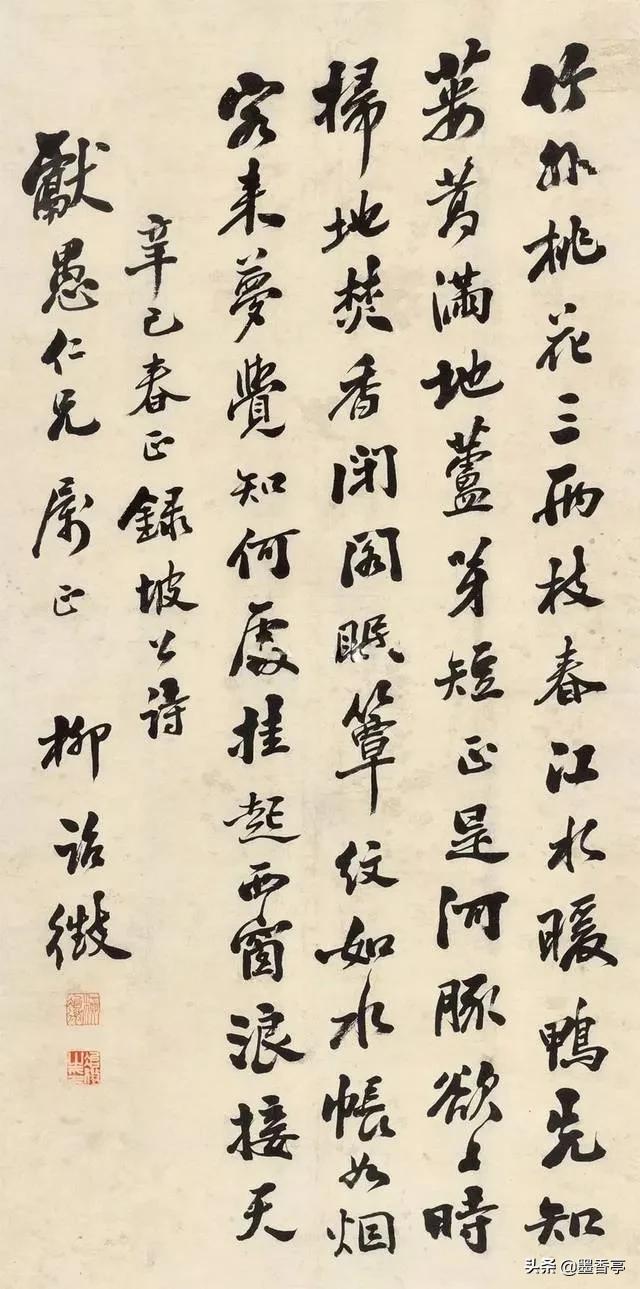 竹外桃花三兩枝春江水暖鴨先知
蔞蒿滿地蘆芽短正是河豚欲上時
掃地焚香閉閣眠簟紋如水帳如烟
客来夢覺知何處挂起西窗浪接天
辛巳春正錄坡公詩
獻愚仁兄属正 柳詒徵
头条 @墨香亭